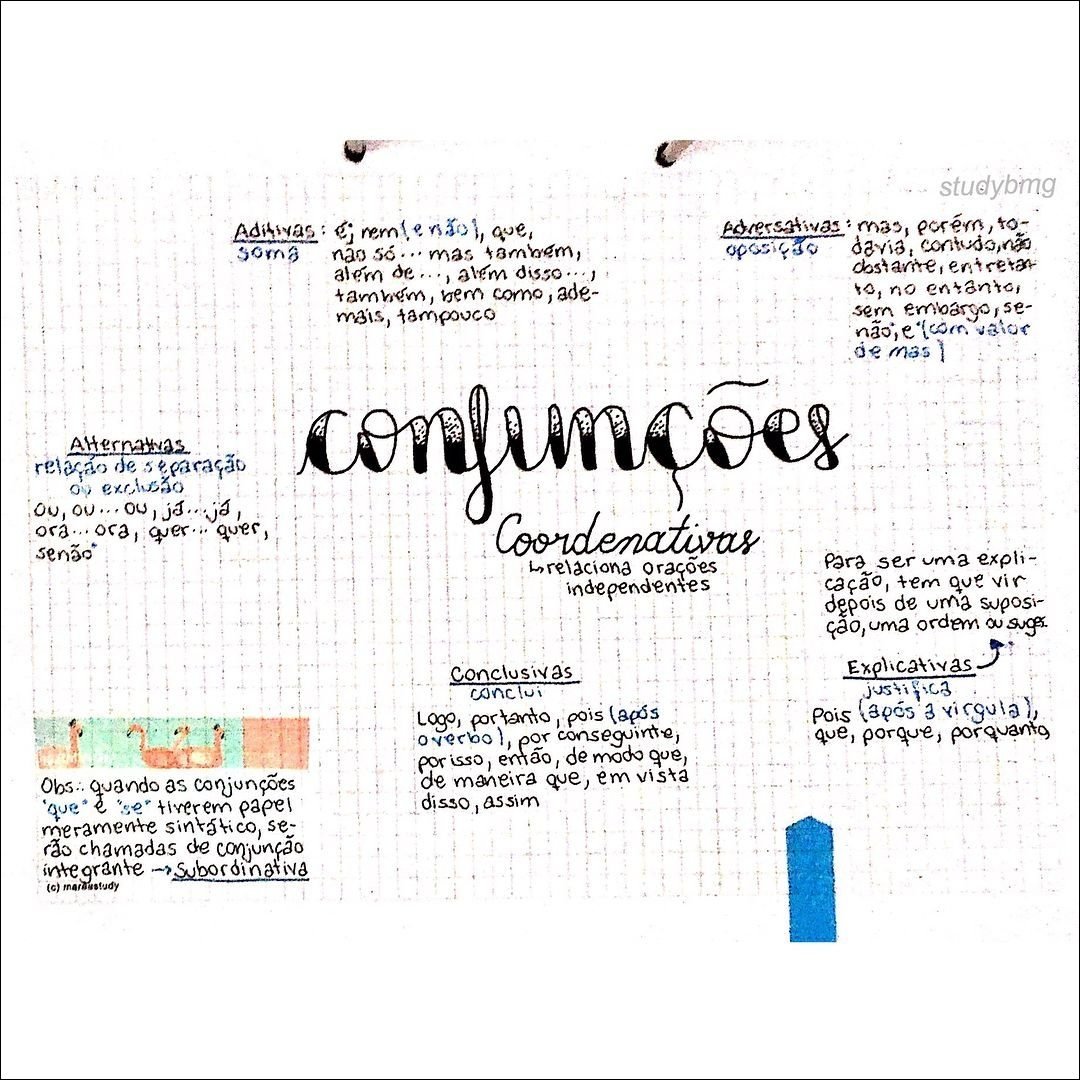 studybmg
Aditivas: e, nem (e não), que,
soma não só... mas também,
além de..., além disso...,
também, bem como, ade-
mais, tampouco
Adversativas: mas, porém, to-
oposição davia, contudo, não
obstante, entretan-
to, no entanto,
sem embargo, se-
não, e (com valor
de mas)
conjunções
Coordenativas
↳relaciona orações
independentes
Alternativas
relação de separação
ou exclusão
ou, ou... ou, já... já,
ora... ora, quer... quer,
senão
Para ser uma expli-
cação, tem que vir
depois de uma suposi-
ção, uma ordem ou suges.
Explicativas
justifica
Pois (após a vírgula),
que, porque, porquanto
Conclusivas
conclui
Logo, portanto, pois (após
o verbo), por conseguinte,
por isso, então, de modo que,
de maneira que, em vista
disso, assim
Obs.: quando as conjunções
"que" e "se" tiverem papel
meramente sintático, se-
rão chamadas de conjunção
integrante → Subordinativa